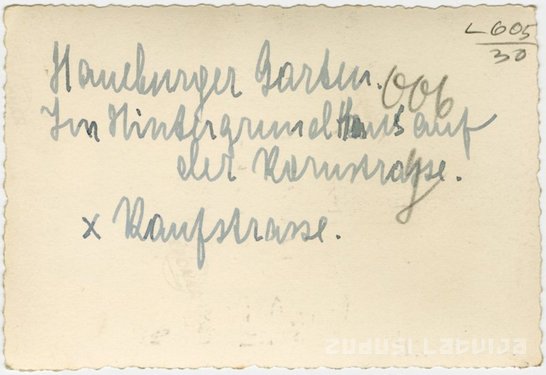 L 605/30
Hamburger Garten. 006
Im Hintergrund Haus auf
der Kornstrasse.
x Kaufstrasse.
zudusilatvija